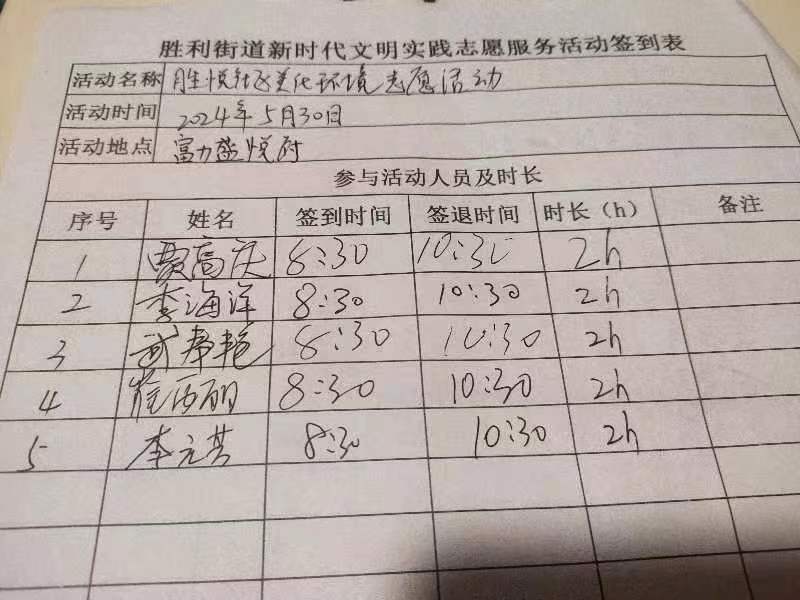 胜利街道新时代文明实践志愿服务活动签到表
活动名称 胜悦社区美化环境志愿活动
活动时间 2024年5月30日
活动地点 富力盛悦府
参与活动人员及时长
序号 姓名 签到时间 签退时间 时长（h） 备注
1 贾高庆 8:30 10:30 2h
2 李海洋 8:30 10:30 2h
3 8:30 10:30 2h
4 崔西丽 8:30 10:30 2h
5 李元芸 8:30 10:30 2h